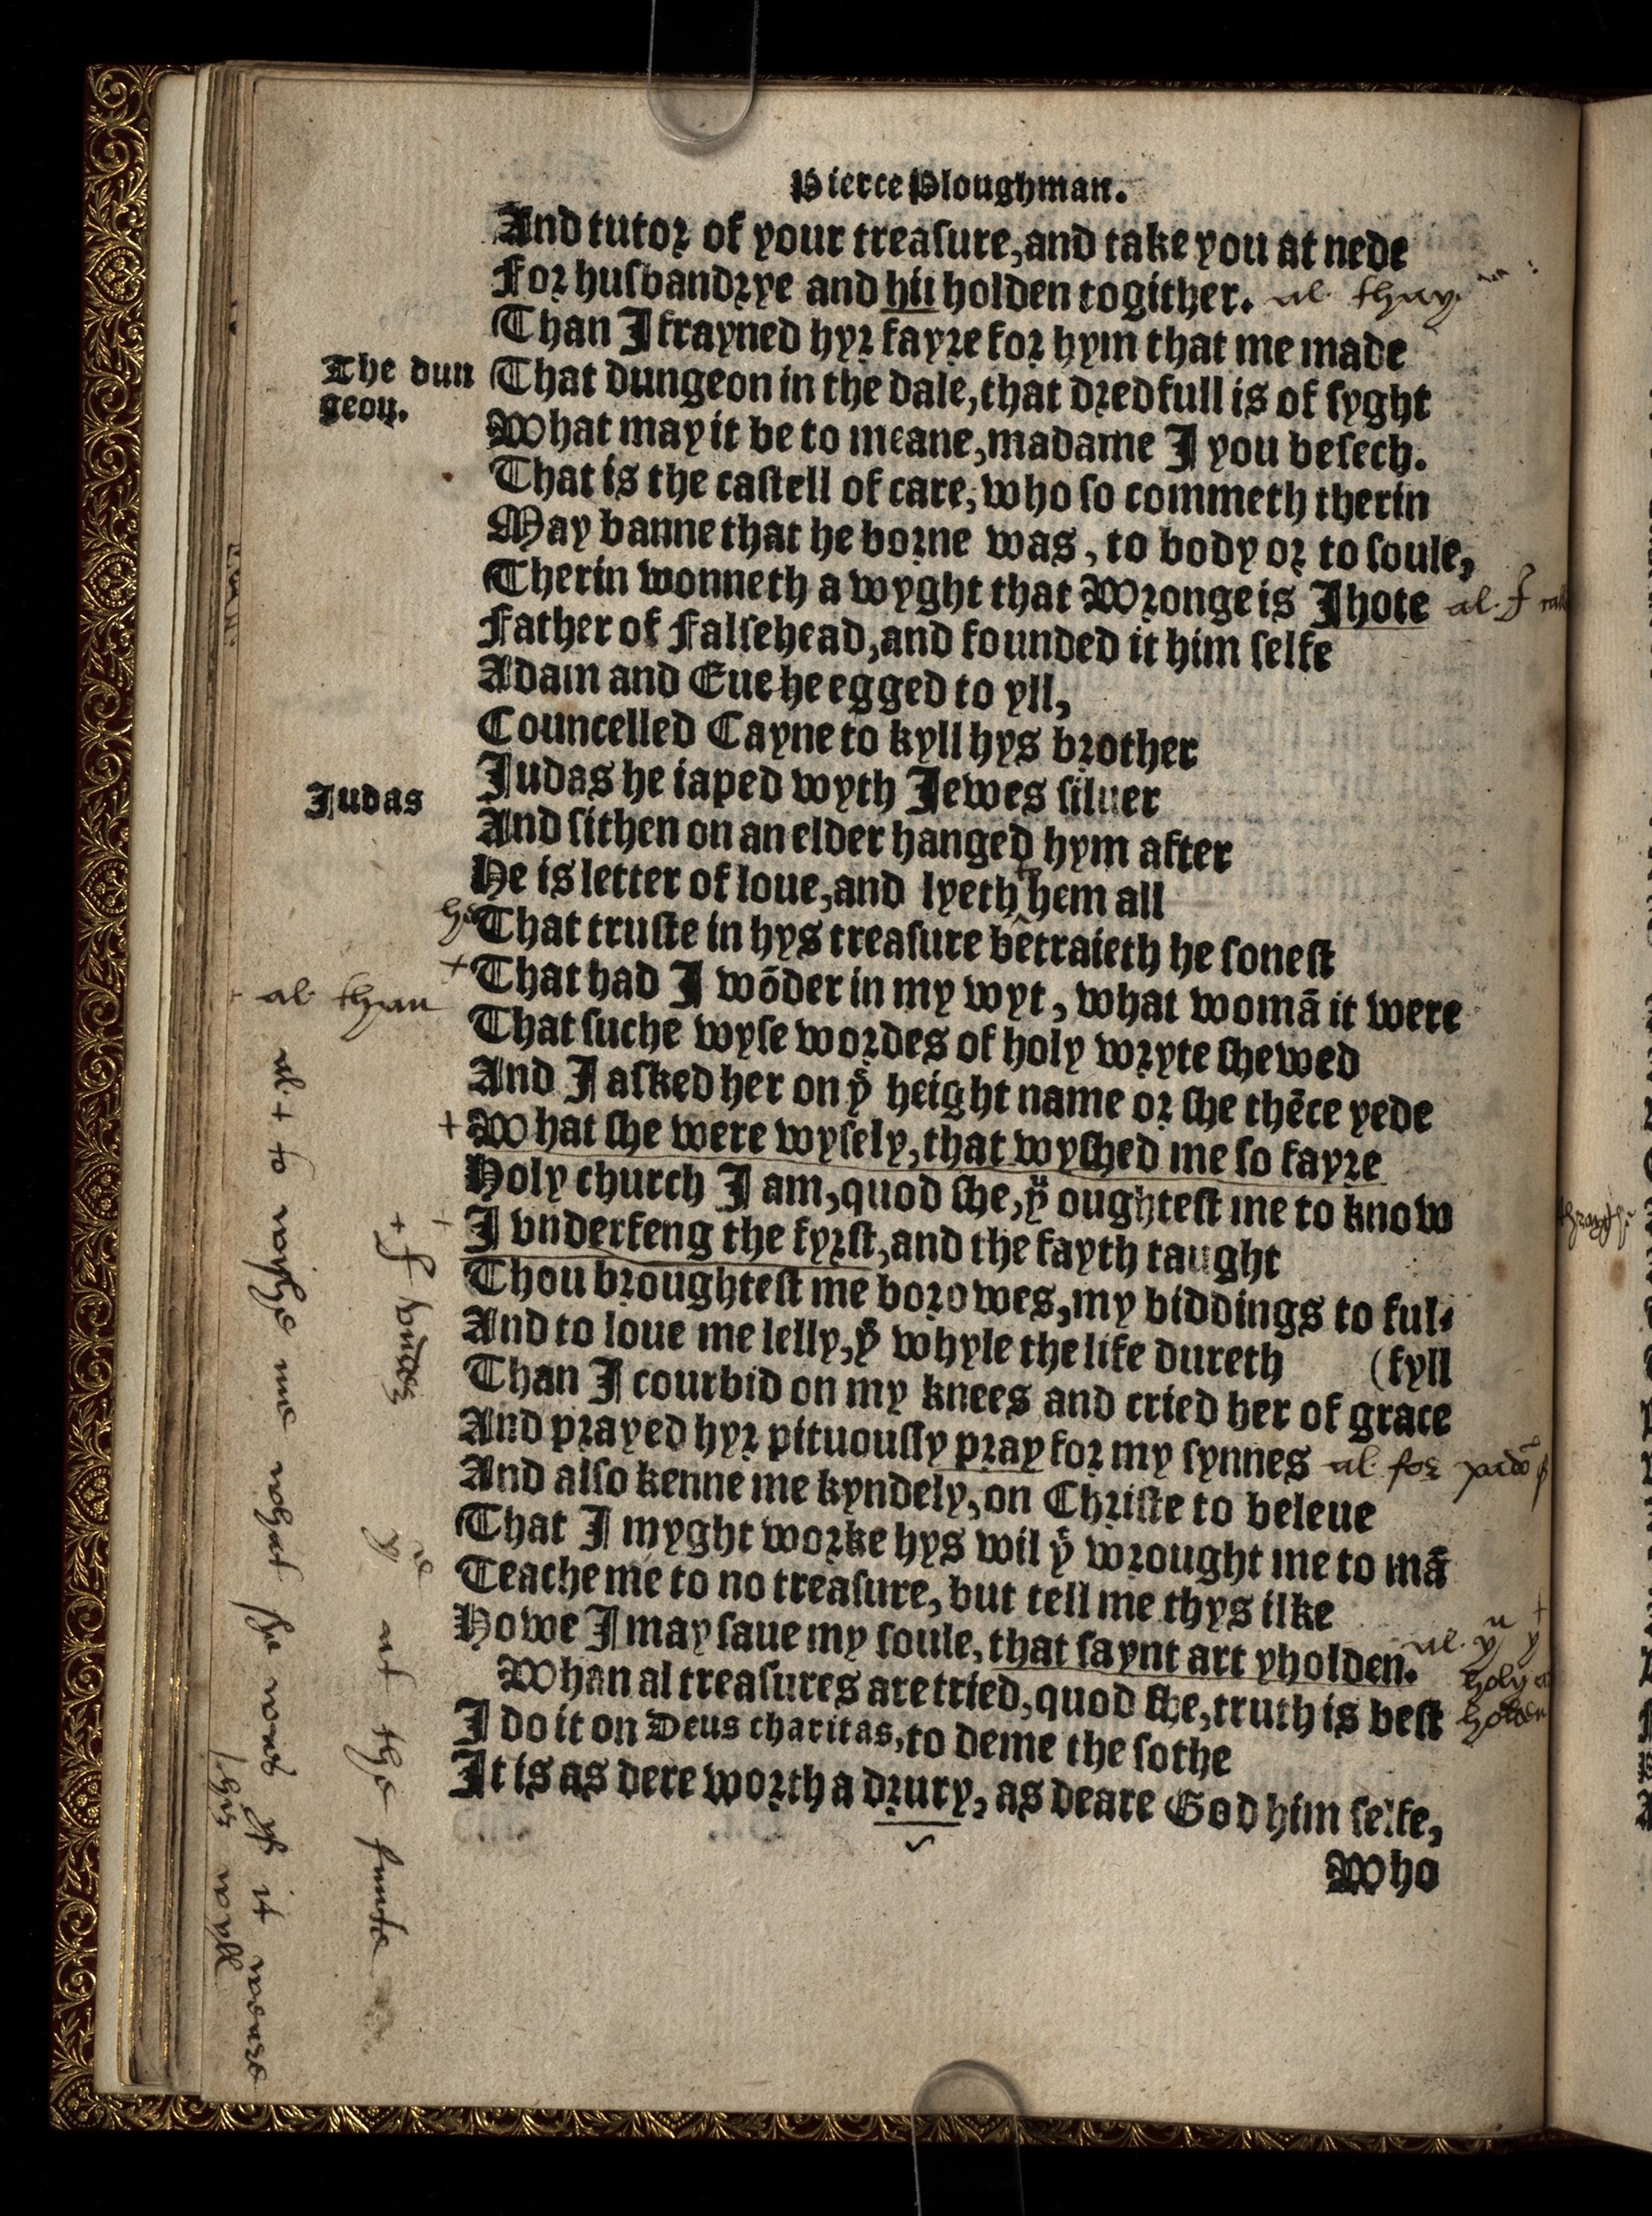 Pierce Ploughman.
And tutor of your treasure, and take you at nede
For husbandrye and hii holden togither. al. thay
Than I frayned hyr fayre for hym that me made
The dun
geon.
That dungeon in the dale, that dredfull is of syght
What may it be to meane, madame I you besech.
That is the castell of care, who so commeth therin
May banne that he borne was, to body or to soule,
Therin wonneth a wyght that Wronge is Ihote al. I
Father of Falsehead, and founded it him selfe
Adam and Eue he egged to yll,
Councelled Cayne to kyll hys brother
Judas
Judas he iaped wyth Jewes siluer
And sithen on an elder hanged hym after
He is letter of loue, and lyeth hem all
That truste in hys treasure betraieth he sonest
al. than
+ That had I wōder in my wyt, what womā it were
That suche wyse wordes of holy wryte shewed
And I asked her on yͤ height name or she thēce yede
+ What she were wysely, that wyshed me so fayre
Holy church I am, quod she, yͧ oughtest me to know
+ I vnderfeng the fyrst, and the fayth taught
Thou broughtest me borowes, my biddings to ful⸗
And to loue me lelly, yͤ whyle the life dureth (fyll
Than I courbid on my knees and cried her of grace
And prayed hyr pituously pray for my synnes al. for
And also kenne me kyndely, on Christe to beleue
That I myght worke hys wil yͭ wrought me to mā
Teache me to no treasure, but tell me thys ilke
Howe I may saue my soule, that saynt art yholden. al. yͧ yͭ
holy
holden
Whan al treasures are tried, quod she, truth is best
I do it on Deus charitas, to deme the sothe
It is as dere worth a drury, as deare God him selfe,
Who
al. + to wysse me what she were yf it weare
his wyll
+ I vnder
yͤ at the funte